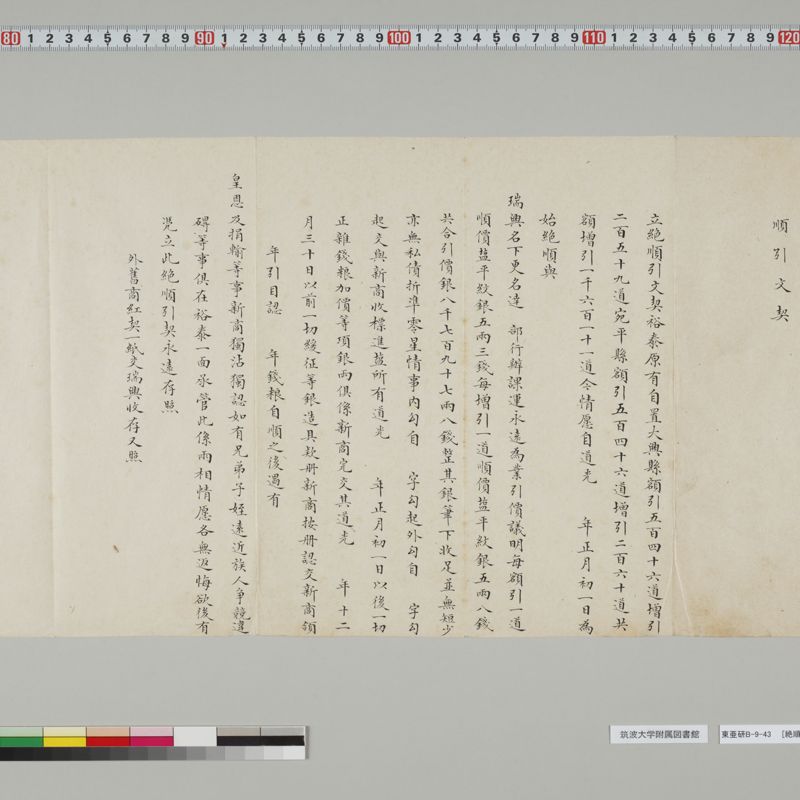 80 1 2 3 4 5 6 7 8 9 90 1 2 3 4 5 6 7 8 9 100 1 2 3 4 5 6 7 8 9 110 1 2 3 4 5 6 7 8 9 120
順引文契
立絶順引文契裕泰原有自置大興縣額引五百四十六道增引
二百五十九道宛平縣額引五百四十六道增引二百六十道共
額增引一千六百一十一道今情愿自道光 年正月初一日為
始絶順與
瑞興名下更名達 部行辦課運永遠為業引價議明每額引一道
順價盐平紋銀五兩三錢每增引一道順價盐平紋銀五兩八錢
共合引價銀八千七百九十七兩八錢整其銀筆下收足並無短少
亦無私債折準零星情事内勾自 字勾起外勾自 字勾
起交與新商收標進盐所有道光 年正月初一日以後一切
正雜錢粮加價等項銀兩俱係新商完交其道光 年十二
月三十日以前一切緩征等銀造具欵册新商按册認交新商領
年引目認 年錢粮自順之後遇有
皇恩及捐輸等事新商獨沾獨認如有兄弟子姪遠近族人爭競違
碍等事俱在裕泰一面承管此係兩相情愿各無返悔欲後有
凴立此絶順引契永遠存照
外舊商紅契一紙交瑞興收存又照
筑波大学附属図書館
東亜研B-9-43 [絶順